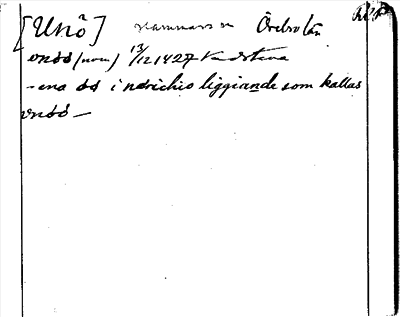 [Unö] Hammars sn Örebro län
vnöö (nom) 13/12 1427 Vadstena
- ena öö i nærichio liggiande som kallas
vnöö -